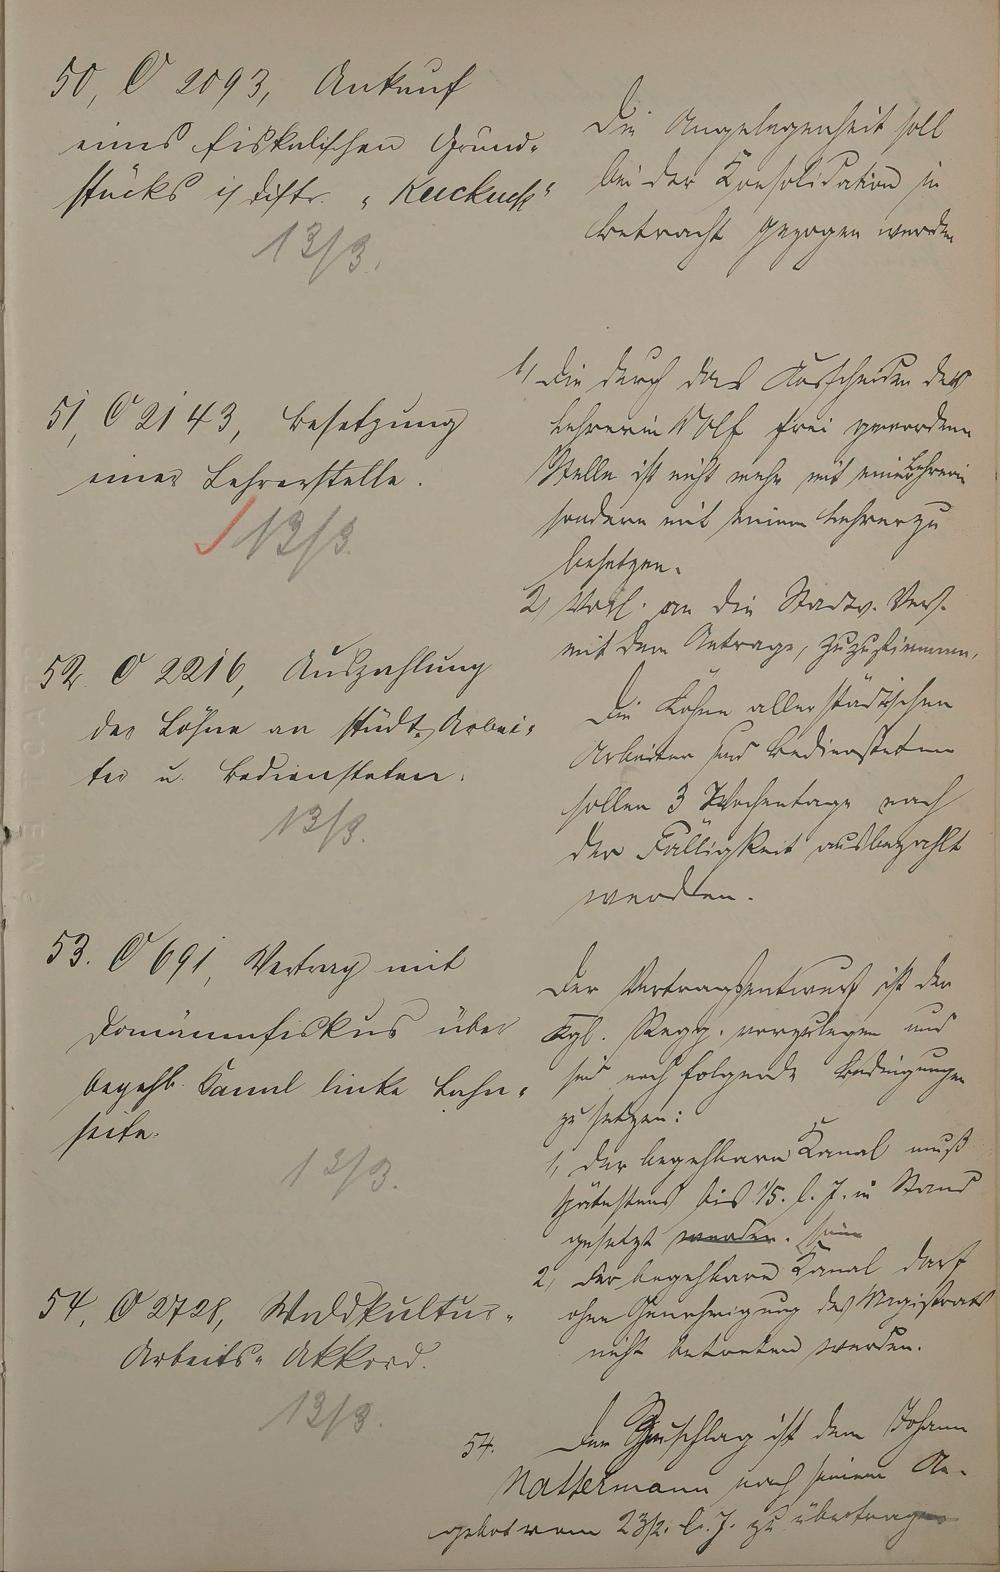 50, O 2093, Ankauf
eines fiskalischen Grund-
stücks i/ Distr. „Kuckuck“
13/3.
Die Angelegenheit soll
bei der Konsolidation in
Betracht gezogen werden
51, O 2143, Besetzung
einer Lehrerstelle.
13/3.
1, Die durch das Ausscheiden der
Lehrerin Wolf frei gewordene
Stelle ist nicht mehr mit einer Lehrerin
sondern mit einem Lehrer zu
besetzen.
2, Vorl. an die Stadtv. Vers.
mit dem Antrage, zuzustimmen.
52. O 2216, Auszahlung
der Löhne an städt. Arbei-
ter u. Bediensteten.
13/3.
Die Löhne aller städtischen
Arbeiter und Bediensteten
sollen 3 Wochentage nach
der Fälligkeit ausbezahlt
werden.
53. O 691, Vertrag mit
Domänenfiskus über
begehb. Kanal linke Lahn-
seite.
13/3.
Der Vertragsentwurf ist der
Kgl. Regg. vorzulegen und
sind noch folgende Bedingungen
zu setzen:
1, Der begehbare Kanal muß
spätestens bis 1/5. l. J. in Stand
gesetzt werden. sein
2, Der begehbare Kanal darf
ohne Genehmigung des Magistrats
nicht betreten werden.
54, O 2728, Waldkultur-
Arbeits-Akkord.
13/3.
54. Der Zuschlag ist dem Johann
Nattermann nach seinem An-
gebot vom 23/2. l. J. zu übertragen